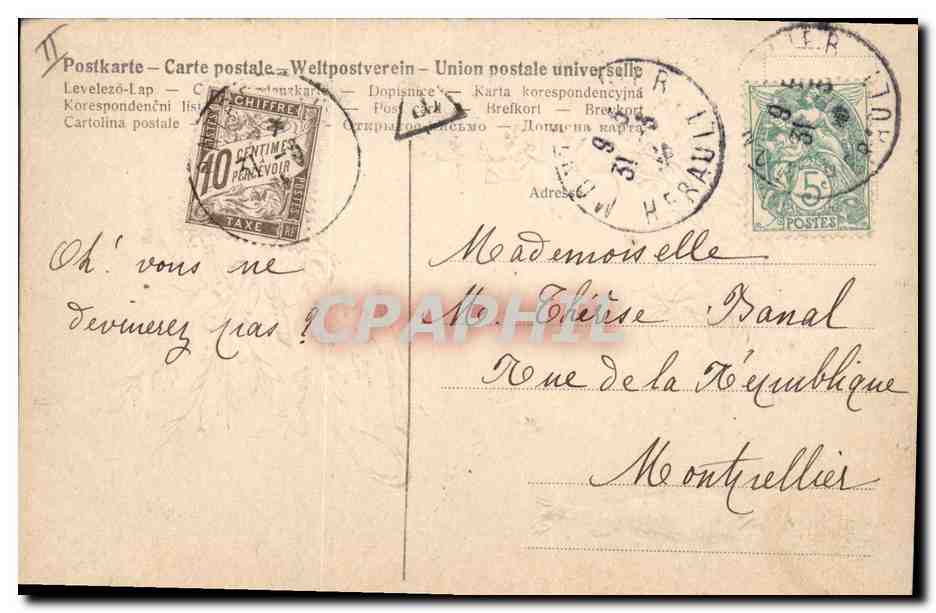 II
Postkarte – Carte postale – Weltpostverein – Union postale universelle
Levelező-Lap. – – Dopisnice – Karta korespondencyjna
Korespondenční Brefkort – Brevkort
Cartolina postale – Открытое – Дописна карта
CHIFFRE
POSTES
10 CENTIMES
A PERCEVOIR
TAXE
RF
MONTPELLIER
HERAULT
31
5c
POSTES
Adresse
Oh! vous ne
devinerez pas ?
Mademoiselle
M. Thérèse Banal
Rue de la République
Montpellier
CPAPHIL